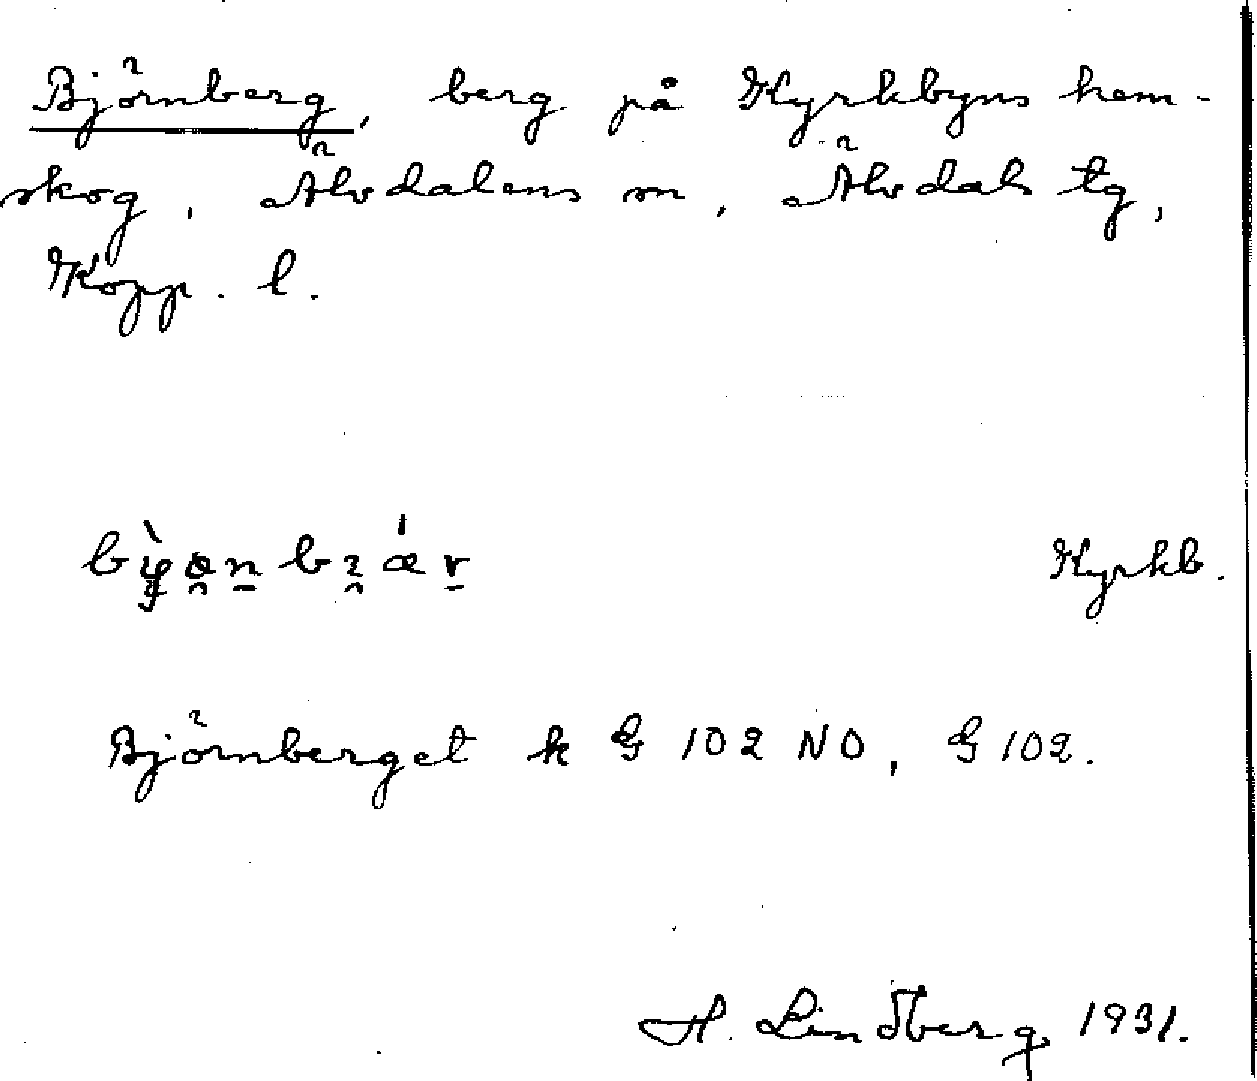 Björnberg, berg på Kyrkbyns hem-
skog, Älvdalens sn, Älvdals tg,
Kopp. l.
Kyrkb.
Björnberget k G 102 NO, G 102.
H. Lindberg 1931.